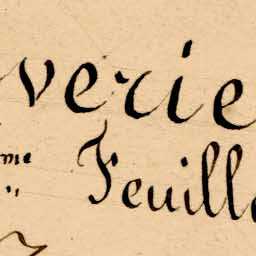 verie
me Feuille